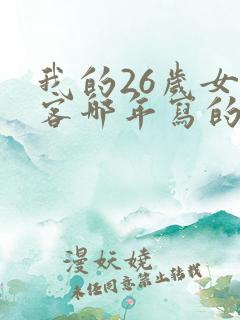 我的26歲女
客那年寫的
漫妖嬈
未经同意禁止转载